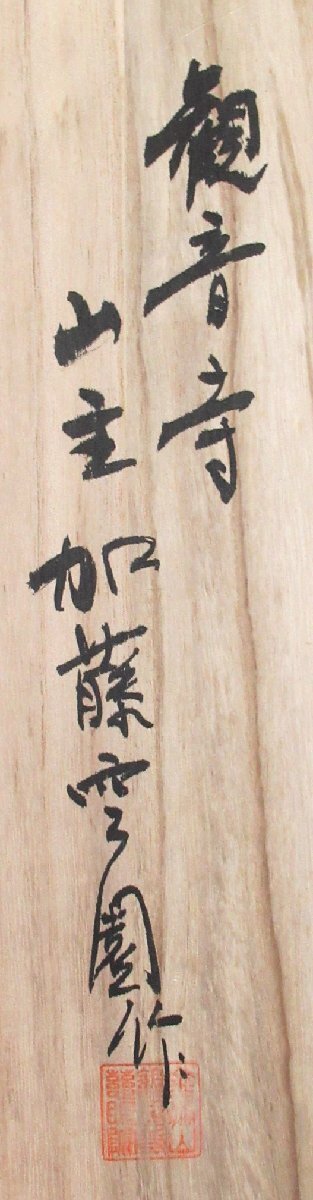 観音寺
山主 加藤雲園作